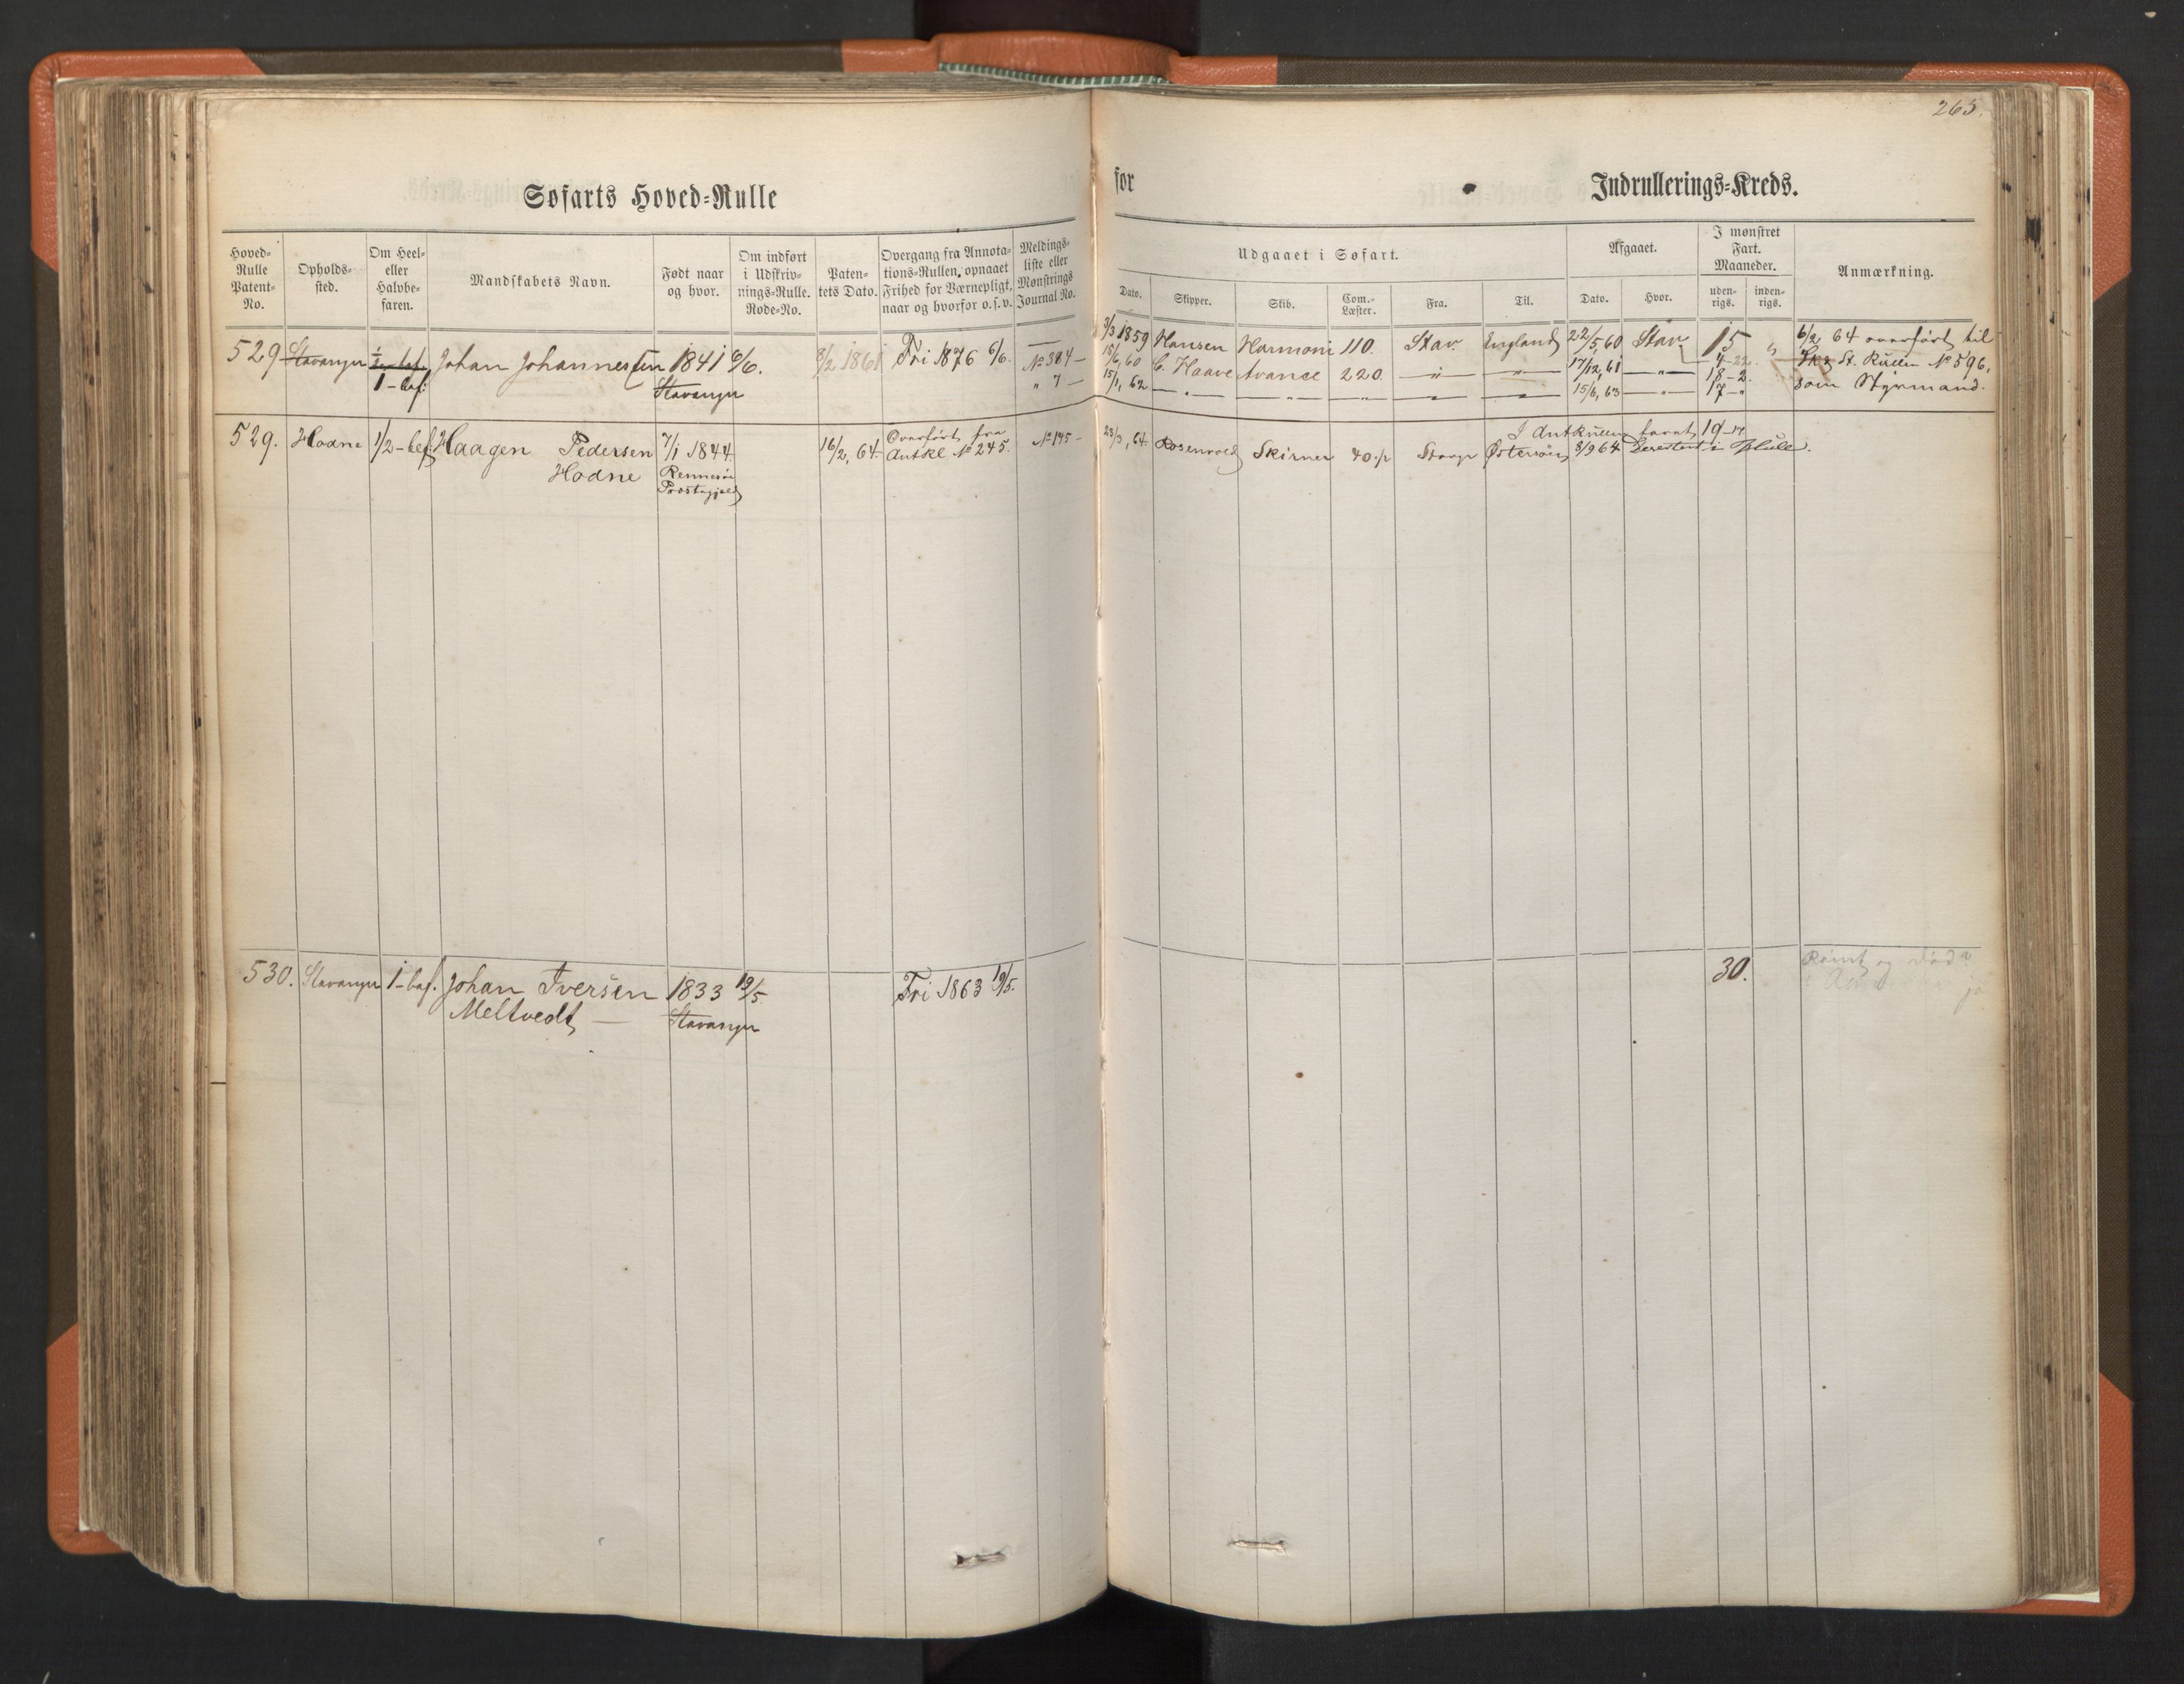 265.
Søfarts Hoved-Rulle for Indrullerings-Kreds.
Hoved-Rulle Patent-No.
Opholds-sted.
Om Heel- eller Halvbe-faren.
Mandskabets Navn.
Født naar og hvor.
Om indført i Udskriv-nings-Rulle. Rode-No.
Paten-tets Dato.
Overgang fra Annota-tions-Rullen, opnaaet Frihed for Værnepligt, naar og hvorfor o. s. v.
Meldings-liste eller Mønstrings Journal No.
Udgaaet i Søfart.
Dato.
Skipper.
Skib.
Com.-Læster.
Fra.
Til.
Afgaaet.
Dato.
Hvor.
I mønstret Fart. Maaneder.
uden-rigs.
inden-rigs.
Anmærkning.
529 Stavanger Johan Johannessen 1841 6/6. 8/2 1861 Fri 1876 6/6. —
1-bef. Stavanger № 384 —
" 7 —
3/3 1859 Hansen Harmoni 110. Stav. England 22/5, 60 Stav. 15 6/2 64 overført til
15/6, 60 C. Haave Avance 220. — " — — " — 17/12, 61 — " — 4-22 St. Rullen № 596,
15/1, 62 — " — — " — — " — — " — — " — 15/6, 63 — " — 18-2. som Styrmand.
17-"
529. Hodne 1/2-bef. Haagen Pedersen 7/1 1844 16/2, 64. Overført fra № 195 -
Hodne Rennesøe Antkl № 245.
Præstegjeld
I Antrullen faret 19-14
23/3, 64. Rosenvold Skirner 40 1/2 Stavgr Østersøen 8/9 64 Deserteret i Hull.
530. Stavanger 1-bef. Johan Iversen 1833 19/5. Fri 1863 19/5. 30. Rømt og død
Meltvedt — Stavanger